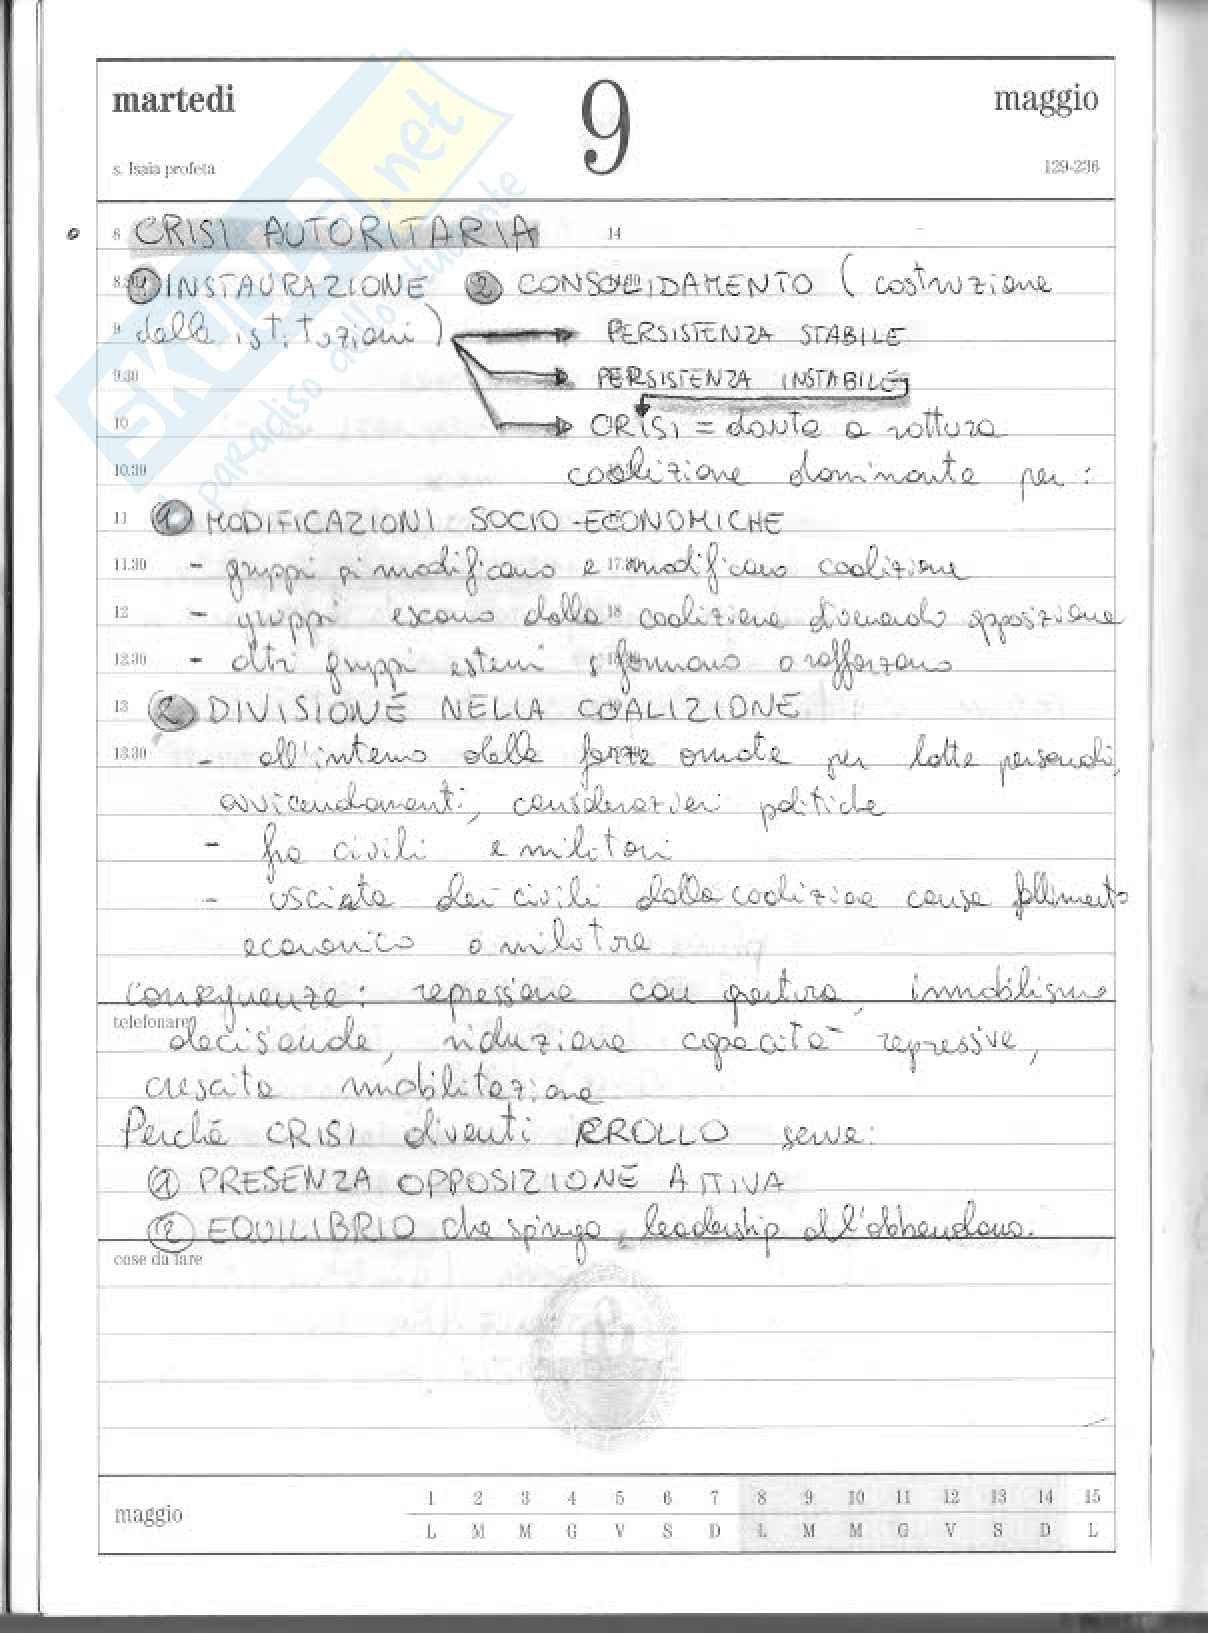 martedi 9 maggio
s. Isaia profeta 129-236
SKUOLA.net
il paradiso dello studente
8 CRISI AUTORITARIA 14
8.30 1 INSTAURAZIONE 2 CONSOLIDAMENTO (costruzione
9 delle istituzioni) PERSISTENZA STABILE
9.30 PERSISTENZA INSTABILE
10 CRISI = dovute a rottura
10.30 coalizione dominante per:
11 1 MODIFICAZIONI SOCIO-ECONOMICHE
11.30 - gruppi si modificano e modificano coalizione
12 - gruppi escono dalla 18 coalizione divenendo opposizione
12.30 - altri gruppi esterni si formano o rafforzano
13 2 DIVISIONE NELLA COALIZIONE
13.30 - all'interno delle forze armate per lotte personali,
avvicendamenti, considerazioni politiche
- fra civili e militari
- uscita dei civili dalla coalizione causa fallimento
economico o militare
conseguenze: repressione con apertura, immobilismo
telefonare
decisionale, riduzione capacità repressive,
crescita mobilitazione
Perché CRISI diventi CROLLO serve:
1 PRESENZA OPPOSIZIONE ATTIVA
2 EQUILIBRIO che spinga leadership all'abbandono.
cose da fare
maggio 1 2 3 4 5 6 7 8 9 10 11 12 13 14 15
L M M G V S D L M M G V S D L